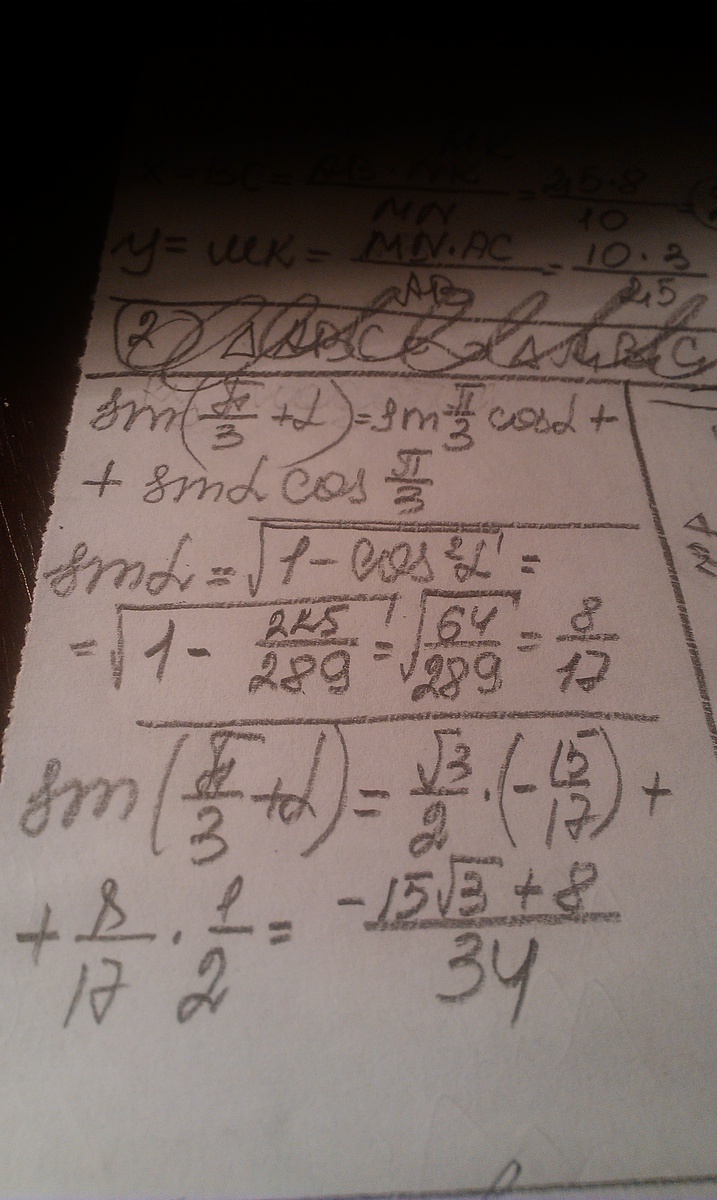 x = BC = AB · NK / MN = 2,5 · 8 / 10 =
y = MK = MN · AC / AB = 10 · 3 / 2,5
sin(π/3 + α) = sin π/3 cosα +
+ sinα cos π/3
sinα = √(1 - cos²α) =
= √(1 - 225/289) = √(64/289) = 8/17
sin(π/3 + α) = √3/2 · (-15/17) +
+ 8/17 · 1/2 = (-15√3 + 8)/34